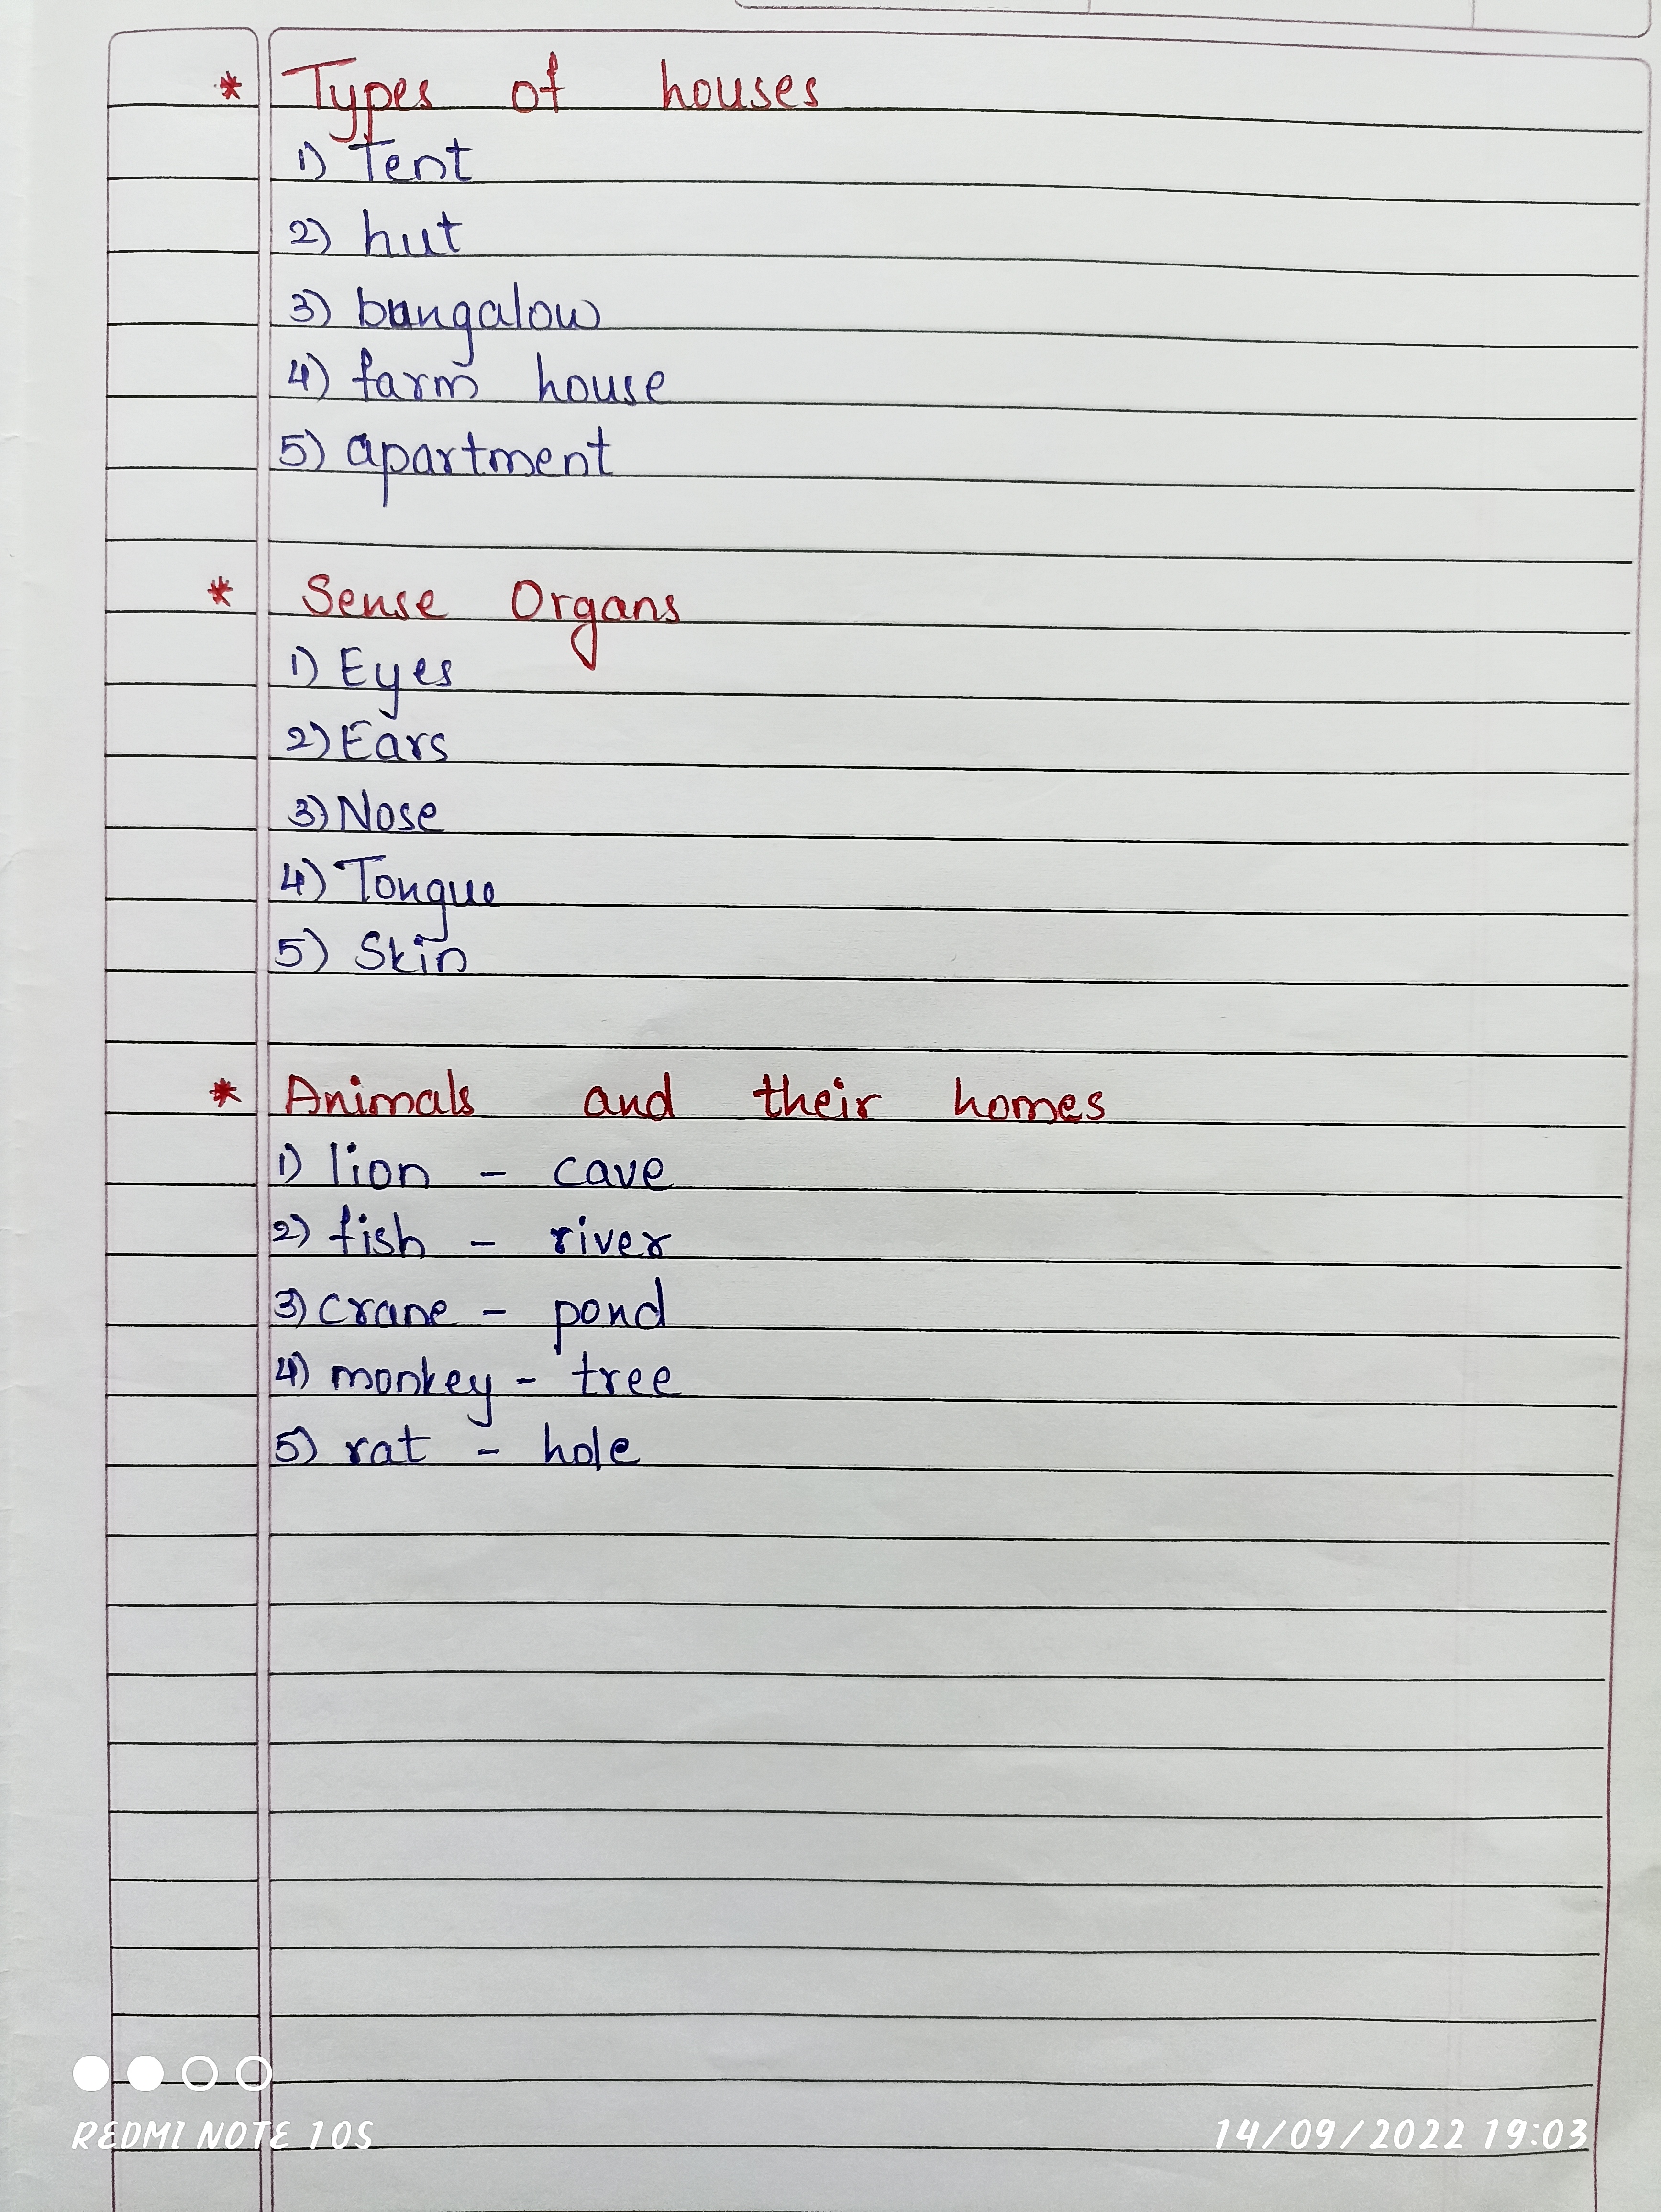 * Types of houses
1) Tent
2) hut
3) bangalow
4) farm house
5) apartment
* Sense Organs
1) Eyes
2) Ears
3) Nose
4) Tongue
5) Skin
* Animals and their homes
1) lion - cave
2) fish - river
3) crane - pond
4) monkey - tree
5) rat - hole
REDMI NOTE 10S
14/09/2022 19:03